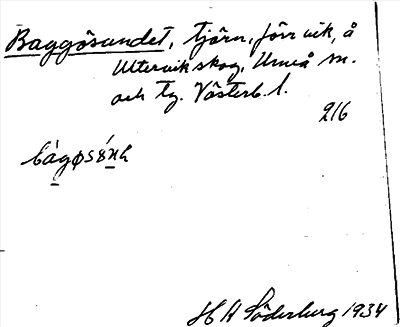 Baggösundet, tjärn, förr vik, å
Uttervikskog, Umeå sn.
och tg. Västerb. l.
216
H A Söderburg 1934